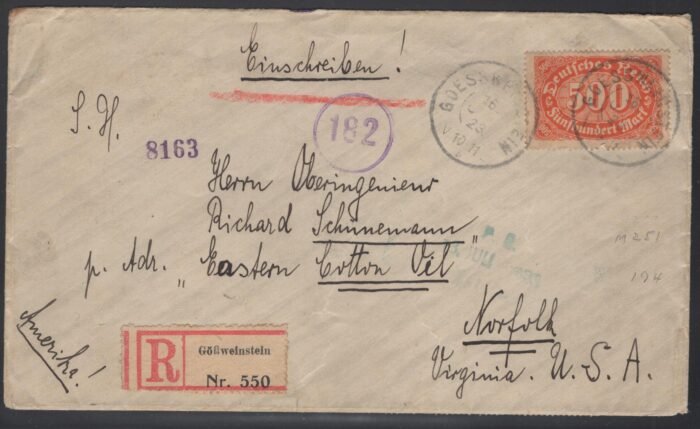 Einschreiben!
Deutsches Reich
500
Fünfhundert Mark
16
23
V 10 11
182
S. H.
8163
Herrn Oberingenieur
Richard Schünemann
p. Adr. „Eastern Cotton Oil"
Amerika!
Norfolk
Virginia. U. S. A.
JULI
M 251
194
R
Gößweinstein
Nr. 550